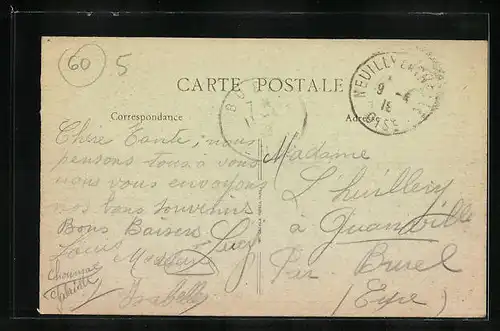 60 5
CARTE POSTALE
Correspondance
Adresse
NEUILLY EN THELLE
9 -4
15
OISE
Chère Tante, nous
pensons tous à vous
nous vous envoyons
nos bons souvenirs
Bons Baisers
Louis Lucy
Madeleine
Isabelle
Madame
L'huillery
à
Par Breuil
(Eure)